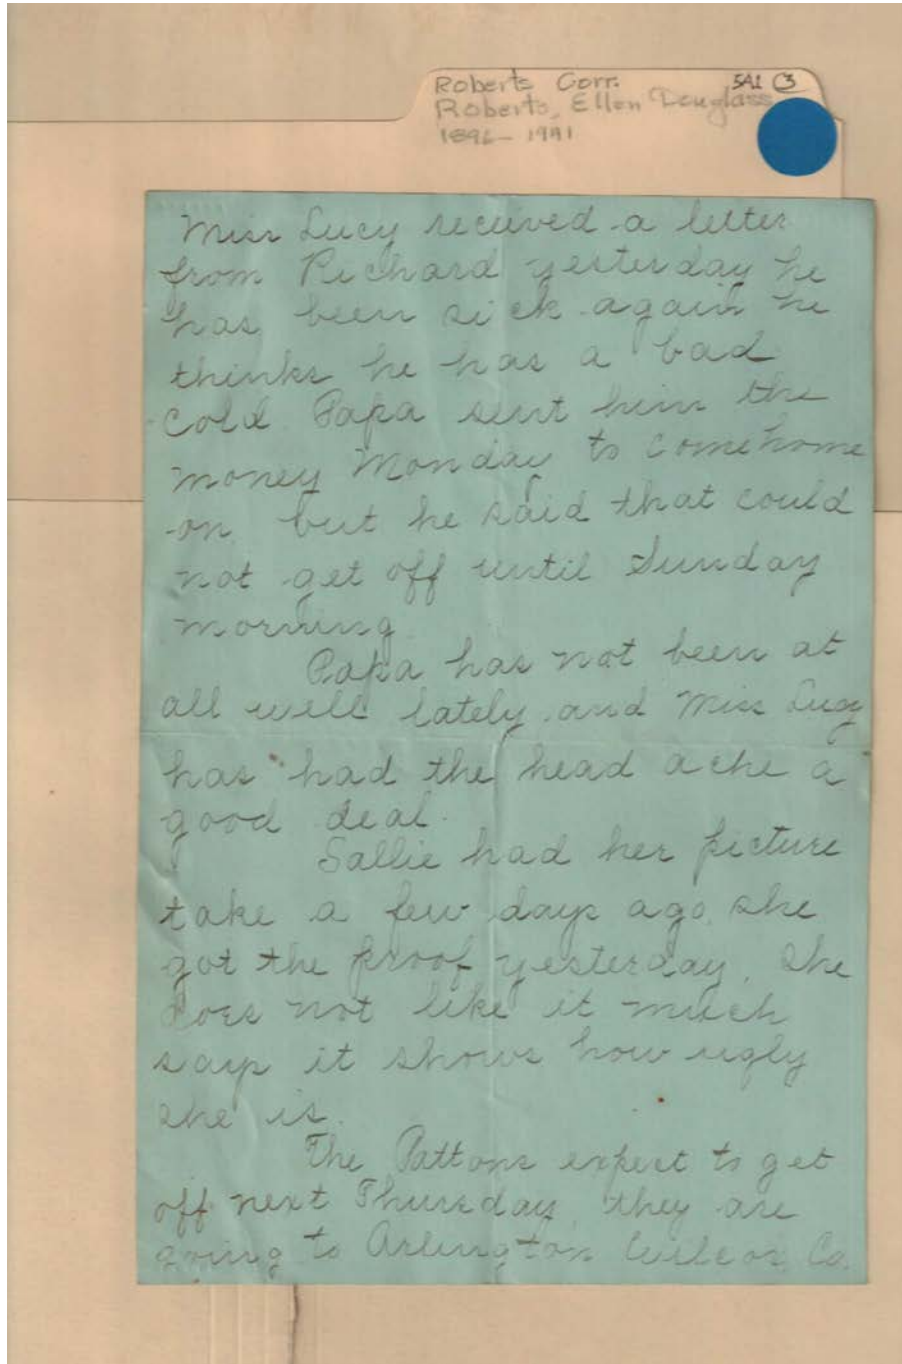 Roberts Corr. 5A1 3
Roberts, Ellen Douglass
1896-1991
Miss Lucy received a letter
from Richard yesterday he
has been sick again he
thinks he has a bad
cold. Papa sent him the
money Monday to come home
on but he said that could
not get off until Sunday
morning.
Papa has not been at
all well lately and Miss Lucy
has had the head ache a
good deal.
Sallie had her picture
take a few days ago, she
got the proof yesterday, she
does not like it much
says it shows how ugly
she is.
The Pattons expect to get
off next Thursday, they are
going to Arlington Wilcox Co.